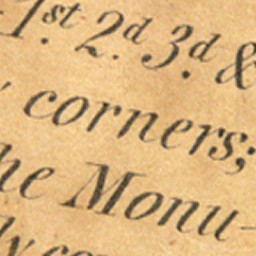 1st 2d 3d &
corners;
he Monu-